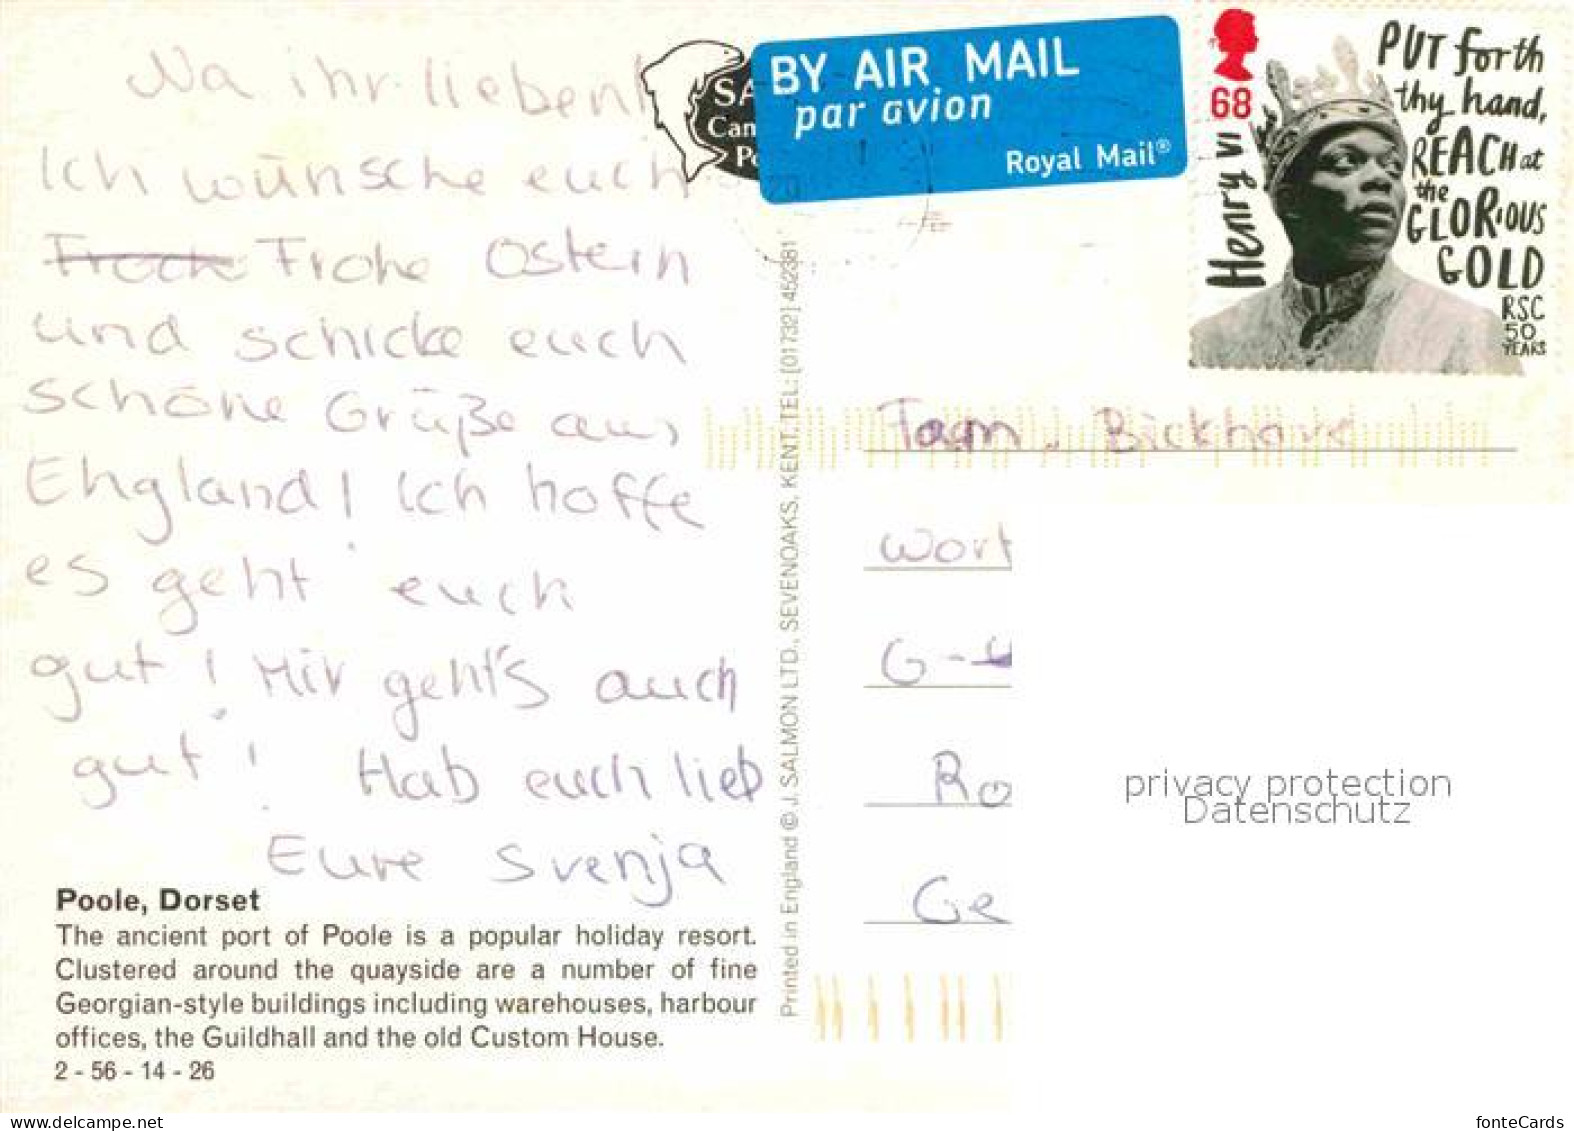 Na ihr lieben!
Ich wünsche euch
Frohe Ostern
und schicke euch
schöne Grüße aus
England! Ich hoffe
es geht euch
gut! Mir geht's auch
gut! Hab euch lieb
Eure Svenja
Poole, Dorset
The ancient port of Poole is a popular holiday resort.
Clustered around the quayside are a number of fine
Georgian-style buildings including warehouses, harbour
offices, the Guildhall and the old Custom House.
2 - 56 - 14 - 26
Printed in England © J. SALMON LTD., SEVENOAKS, KENT. TEL: [01732] 452381
BY AIR MAIL
par avion
Royal Mail®
68
Henry VI
PUT forth
thy hand,
REACH at
the
GLORIOUS
GOLD
RSC
50
YEARS
Fam.
G-
Ro
Ge
privacy protection
Datenschutz
my-e-card.net
fonteCards